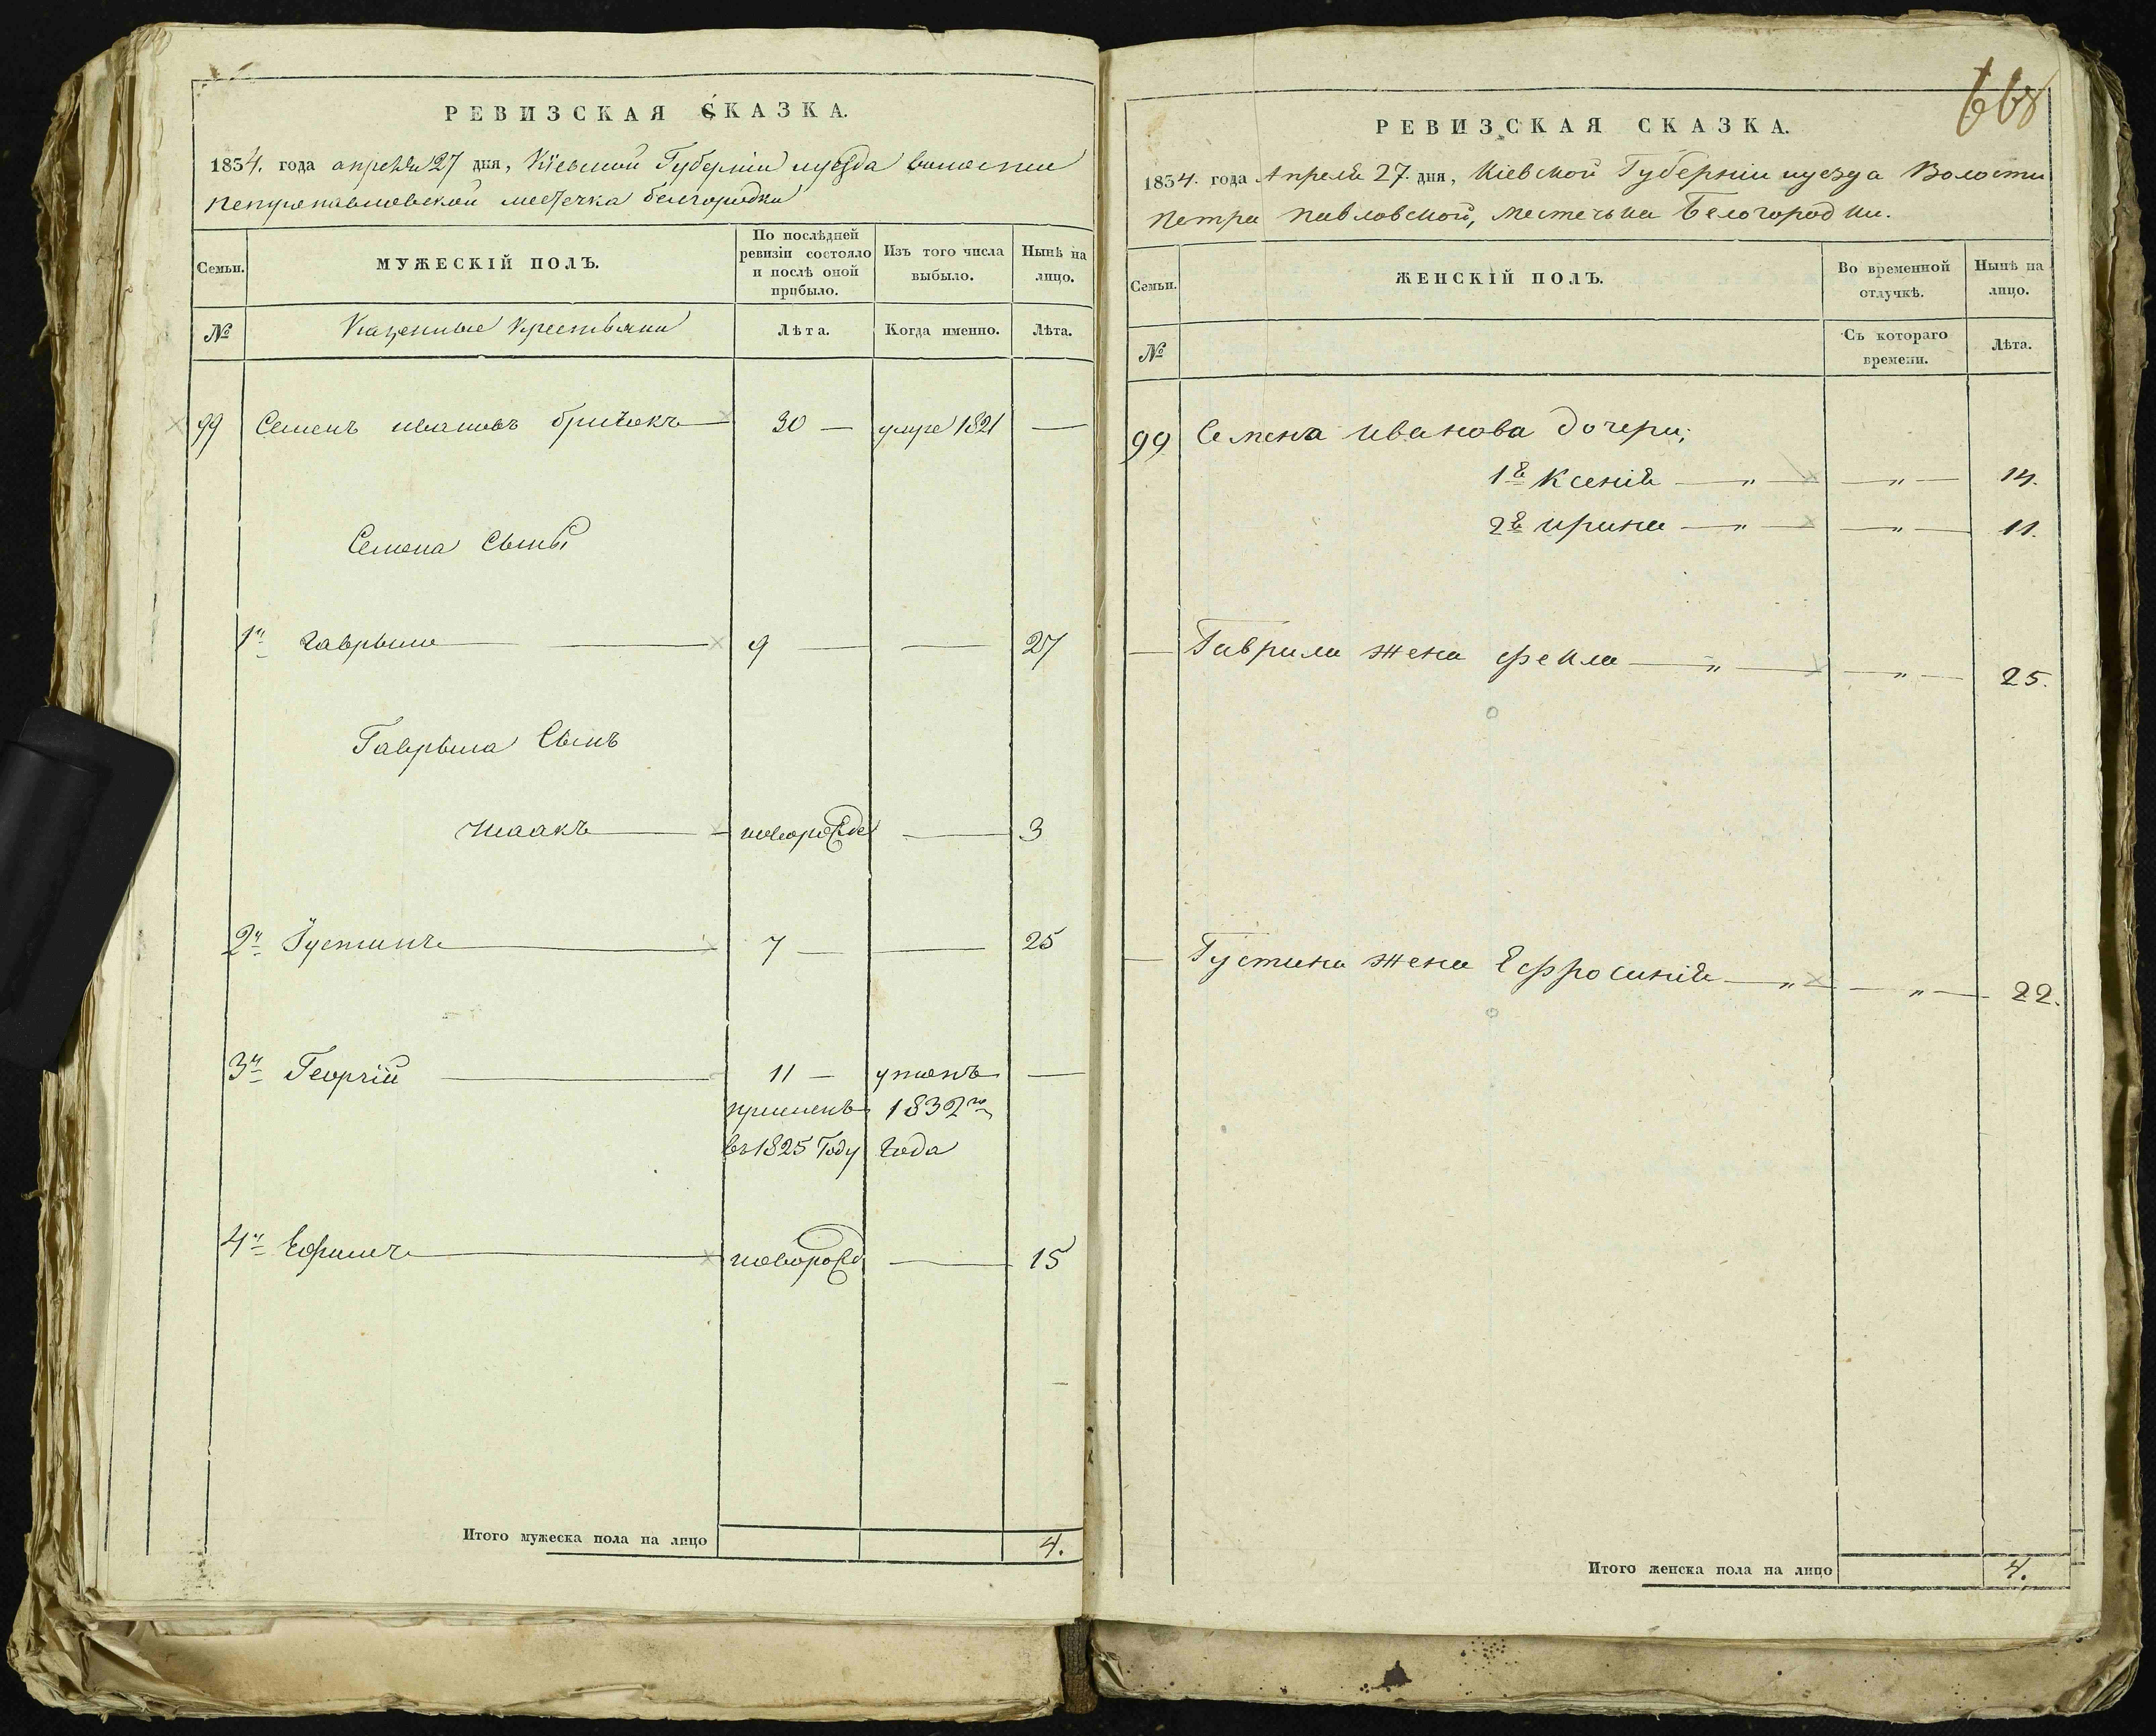 РЕВИЗСКАЯ СКАЗКА.
1834. года апреля 27 дня, Кіевской Губерніи и уезда волости
петропавловской местечка белгородки
Семьи.
МУЖЕСКІЙ ПОЛЪ.
По послѣдней ревизіи состояло и послѣ оной прибыло.
Изъ того числа выбыло.
Нынѣ на лицо.
№
Казенные Крестьяни
Лѣта.
Когда именно.
Лѣта.
99 Семенъ ивановъ 30 — умре 1821 —
Семена Сыны
1й гаврыло — 9 — — 27
Гаврыла Сынъ
Исаакъ — новорожде — 3
2й Густинъ — 7 — — 25
3й Георгій — 11 — —
1832го
въ 1825 Году года
4й Ефимъ — новорожд — 15
Итого мужеска пола на лицо 4.
668
РЕВИЗСКАЯ СКАЗКА.
1834. года Апреля 27. дня, Кіевской Губерніи и уезда Волости
Петра павловской, местечка Белогородки.
Семьи.
ЖЕНСКІЙ ПОЛЪ.
Во временной отлучкѣ.
Нынѣ на лицо.
№
Съ котораго времени.
Лѣта.
99 Семена иванова дочери;
1я Ксенія — „ — — „ — 14.
2я ирина — „ — — „ — 11.
— Гаврила жена Фекла — „ — — „ — 25.
— Густина жена Ефросинія — „ — „ — 22.
Итого женска пола на лицо 4.